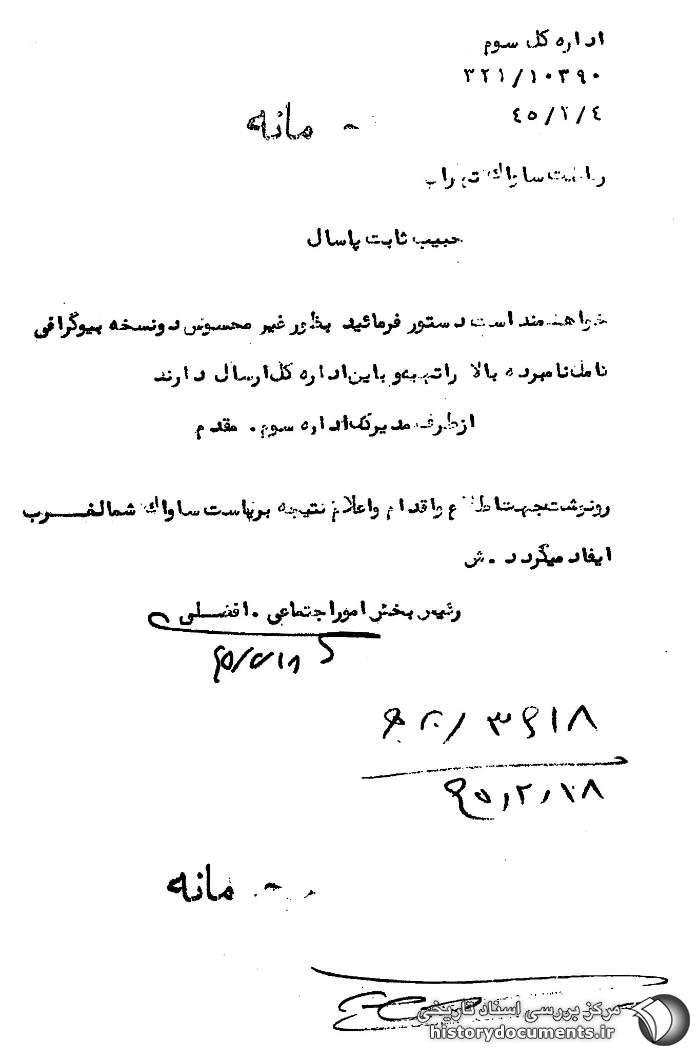 اداره کل سوم
۳۲۱/۱۰۳۹۰
۴۵/۲/۴
مانه
ریاست ساواک تهران
حبیب ثابت پاسال
خواهشمند است دستور فرمائید بطور غیر محسوس دو نسخه بیوگرافی
کامل نامبرده بالا را تهیه و باین اداره کل ارسال دارند
از طرف مدیر کل اداره سوم. مقدم
رونوشت جهت اطلاع و اقدام و اعلام نتیجه بریاست ساواک شمالغرب
ایفاد میگردد. ش
رئیس بخش امور اجتماعی. افضلی
۳۶۱۸
۴۵/۲/۱۸
مانه
مرکز بررسی اسناد تاریخی
historydocuments.ir